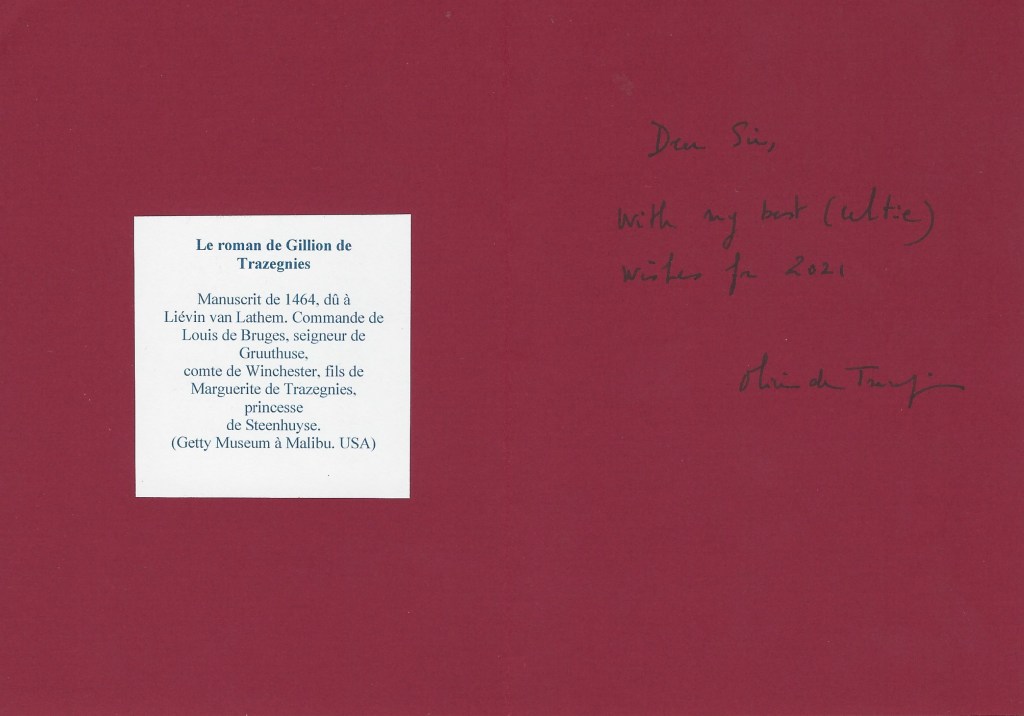 Le roman de Gillion de
Trazegnies
Manuscrit de 1464, dû à
Liévin van Lathem. Commande de
Louis de Bruges, seigneur de
Gruuthuse,
comte de Winchester, fils de
Marguerite de Trazegnies,
princesse
de Steenhuyse.
(Getty Museum à Malibu. USA)
Dear Sir,
With my best (celtic)
wishes for 2021
Olivier de Trazegnies